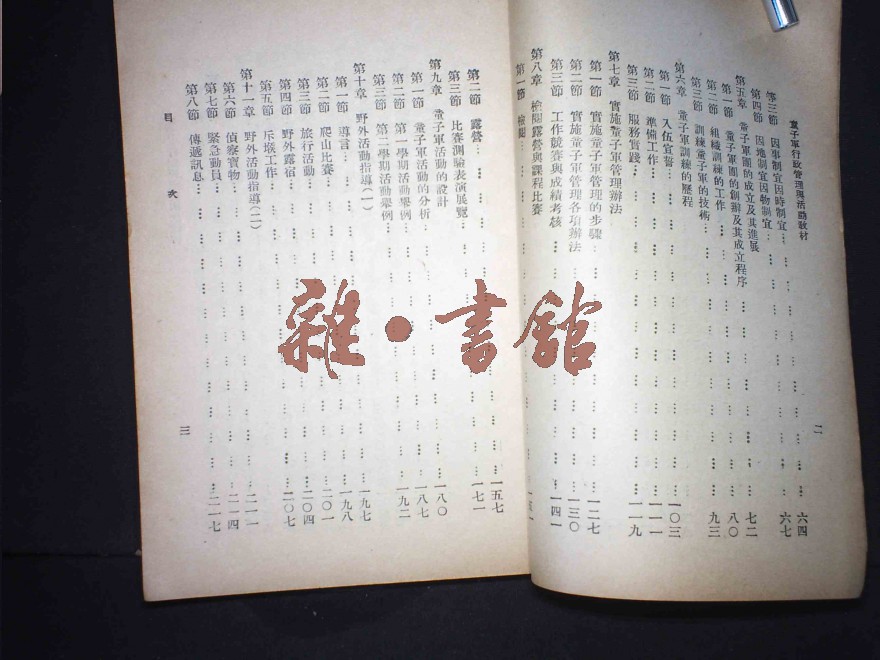 童子軍行政管理與活動教材
二
第三節 因事制宜因時制宜 六四
第四節 因地制宜因物制宜 六七
第五章 童子軍團的成立及其進展
第一節 童子軍團的創辦及其成立程序 七二
第二節 組織訓練的工作 八〇
第三節 訓練童子軍的技術 九三
第六章 童子軍訓練的歷程
第一節 入伍宣誓 一〇三
第二節 準備工作 一一一
第三節 服務實踐 一一九
第七章 實施童子軍管理辦法
第一節 實施童子軍管理的步驟 一二七
第二節 實施童子軍管理各項辦法 一三〇
第三節 工作競賽與成績考核 一四一
第八章 檢閱露營與課程比賽
第一節 檢閱
第二節 露營 一五七
第三節 比賽測驗表演展覽 一七一
第九章 童子軍活動的設計
第一節 童子軍活動的分析 一八〇
第二節 第一學期活動舉例 一八七
第三節 第二學期活動舉例 一九二
第十章 野外活動指導(一)
第一節 導言 一九七
第二節 爬山比賽 一九八
第三節 旅行活動 二〇一
第四節 野外露宿 二〇四
第五節 斥堠工作 二〇七
第十一章 野外活動指導(二)
第六節 偵察實物 二一一
第七節 緊急動員 二一四
第八節 傳遞訊息 二一七
目 次
三
雜·書館